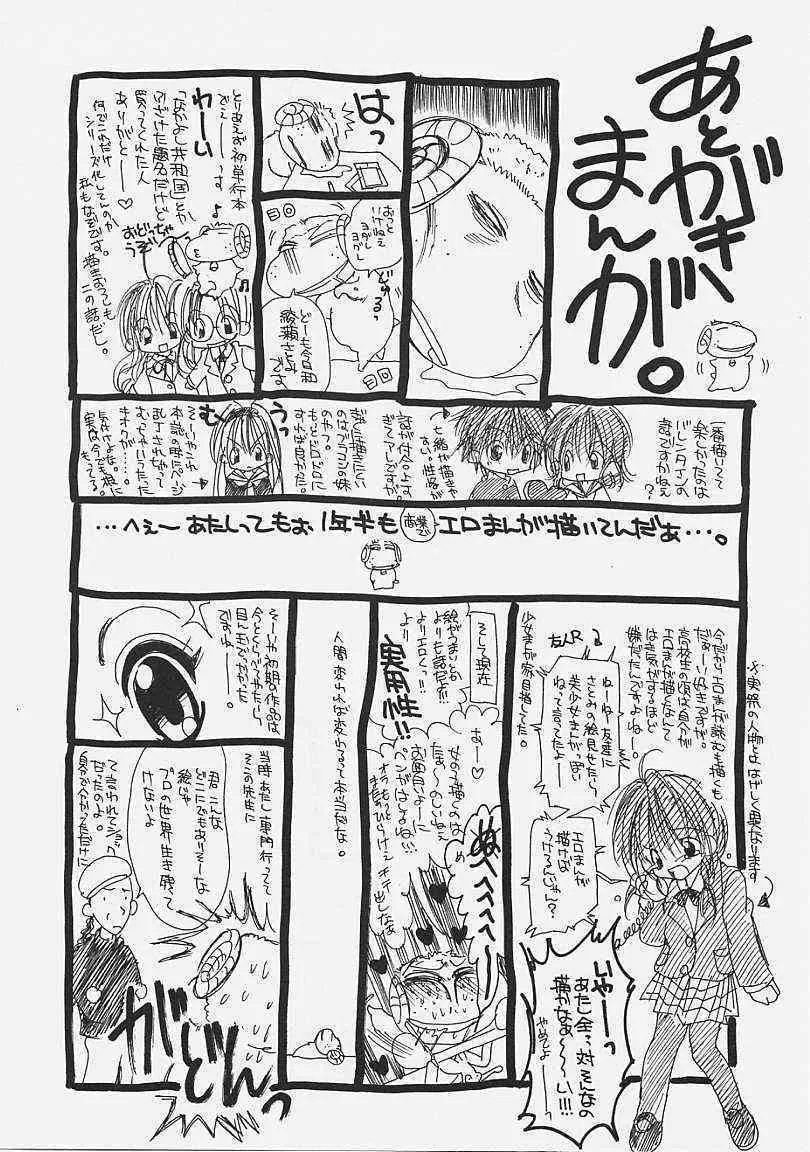 あとがき
まんが。
はっ
おっと
いけねえ
ヨダレ
ヨダレ
どぅるっ
どーも今日和
綾瀬さとみ
です
とりあえず初単行本
でぇーーっす♪
わーい
「なかよし共和国」とか
ふざけた題名だけど
買ってくれた人
ありがとー♡
何でこれだけ
シリーズ化してんのか
私もなぞです。描きおろしも
この話だし。
一番描いてて
楽しかったのは
バレンタインの
話ですかねぇ?
七緒が描きや
すい。性格が
ぎゃくに描きたい
のはブラコンの妹
のやつ。
もっとドロドロに
すれば良かた。
うっ
む
そーいやこれ
本誌の時ページ
乱丁されちゃって
むっちゃいった
キオクが…
…へぇーあたしってもぉ1年半も商業でエロまんが描いてんだぁ…。
※実祭の人物とははげしく異なります
今だからエロまんが読むも描くも
だぁーい好きですが。
高校生の頃は自分が
エロまんが描くなんて
は き気がするほど
嫌だったんですよね。
友人R
ねーねー友達に
さとみの絵見せたら、
美少女まんがっぽい
ねって言ってたよー
エロまんが
描けば
うけるんじゃん?
少女まんが家目指してた。
いやーっ
あたし全っ対そんなの
描かなぁ〜〜〜い!!!
やめてよー
そして現在
あー♡
女の子描くのは
たぁ〜のしいねぇ
お口調いよーに
ペンがはしるねい!!!
オラもっと
ひらけえ
キテ出しなぁ
ぬへへへへ
絵がうまいね
よりも話だぁ!!
よりエロくっ!!
より
実用性!!
人間変われば変わるって本当だな。
そーいや初期の作品は
今とくらべてみたら、
目ん玉でかかった
ですね。
当時あたし専門行ってて
そこの先生に
君こんな
どこにでもありそーな
絵じゃ
プロの世界生き残って
けないよ
って言われてショック
だったのよ。
自分で分かってただけに
がどんっ